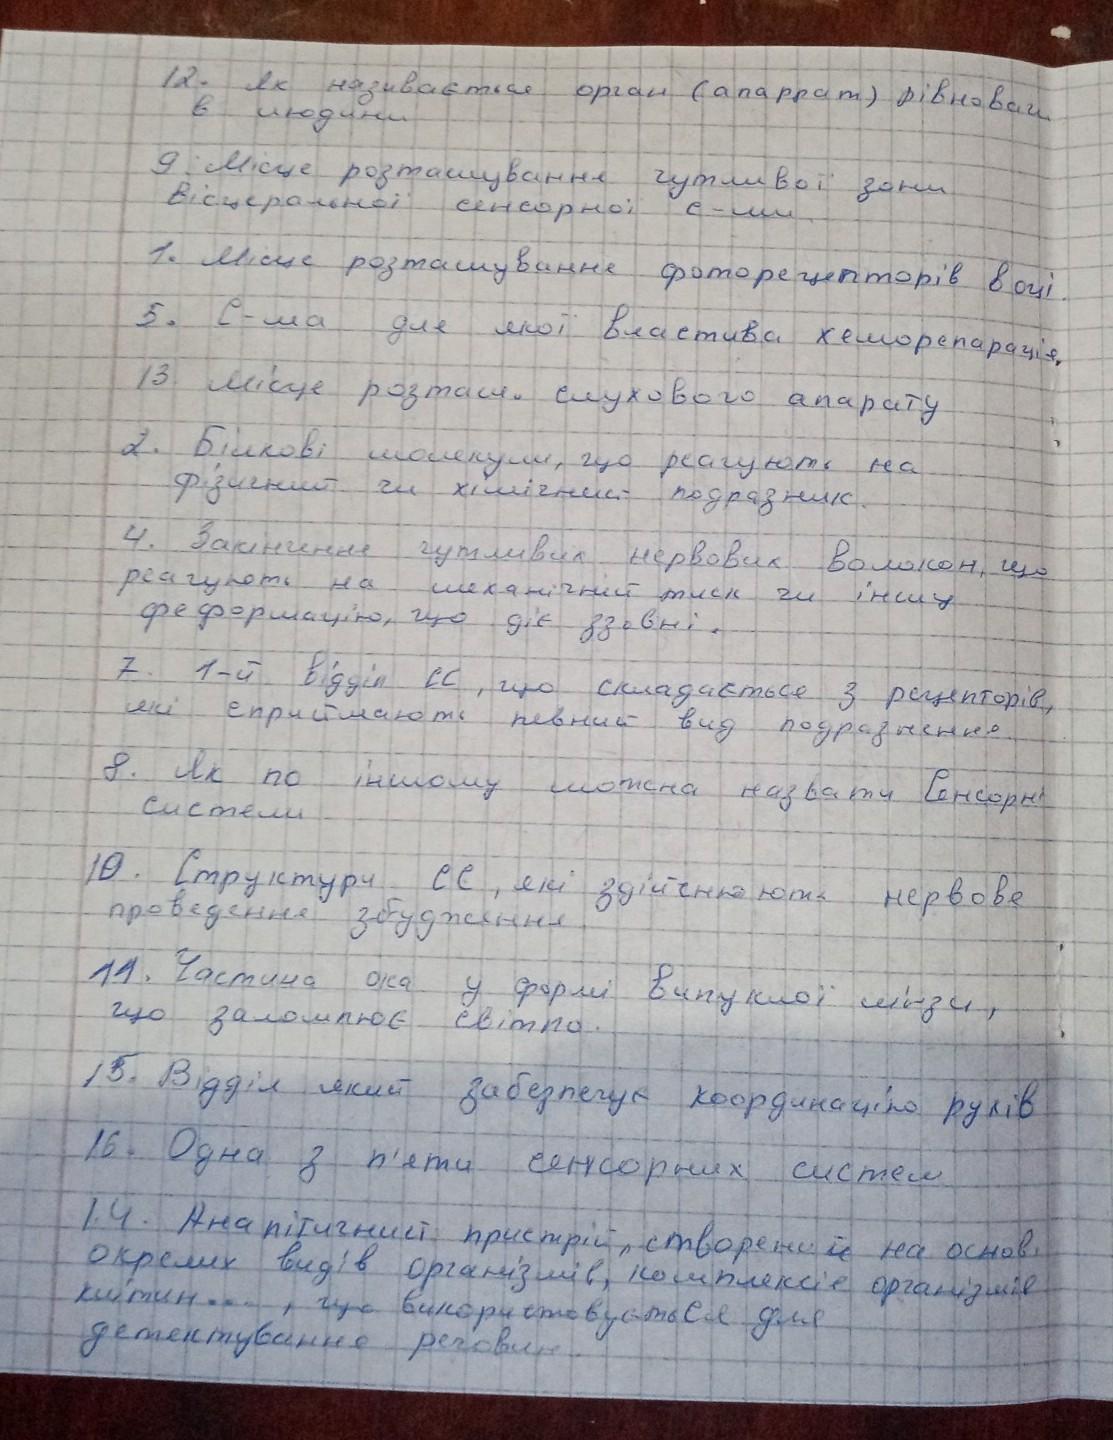 12. Як називається орган (апаррат) рівноваги
в людини
9. Місце розташування чутливої зони
Вісцеральної сенсорної с-ми.
1. Місце розташування фоторецепторів в оці.
5. С-ма для якої властива хеморепарація.
13. Місце розташ. слухового апарату
2. Білкові молекули, що реагують на
фізичний чи хімічний подразник.
4. Закінчення чутливих нервових волокон, що
реагують на механічний тиск чи іншу
деформацію, що діє ззовні.
7. 1-й відділ СС, що складається з рецепторів,
які сприймають певний вид подразнення.
8. Як по іншому можна назвати Сенсорні
системи
10. Структури СС, які здійснюють нервове
проведення збудження
11. Частина ока у формі випуклої лінзи,
що заломлює світло.
15. Відділ який забезпечує координацію рухів
16. Одна з п'яти сенсорних систем
14. Аналітичний пристрій, створений на основі
окремих видів організмів, комплексів організмів
клітин...., що використовується для
детектування речовин.